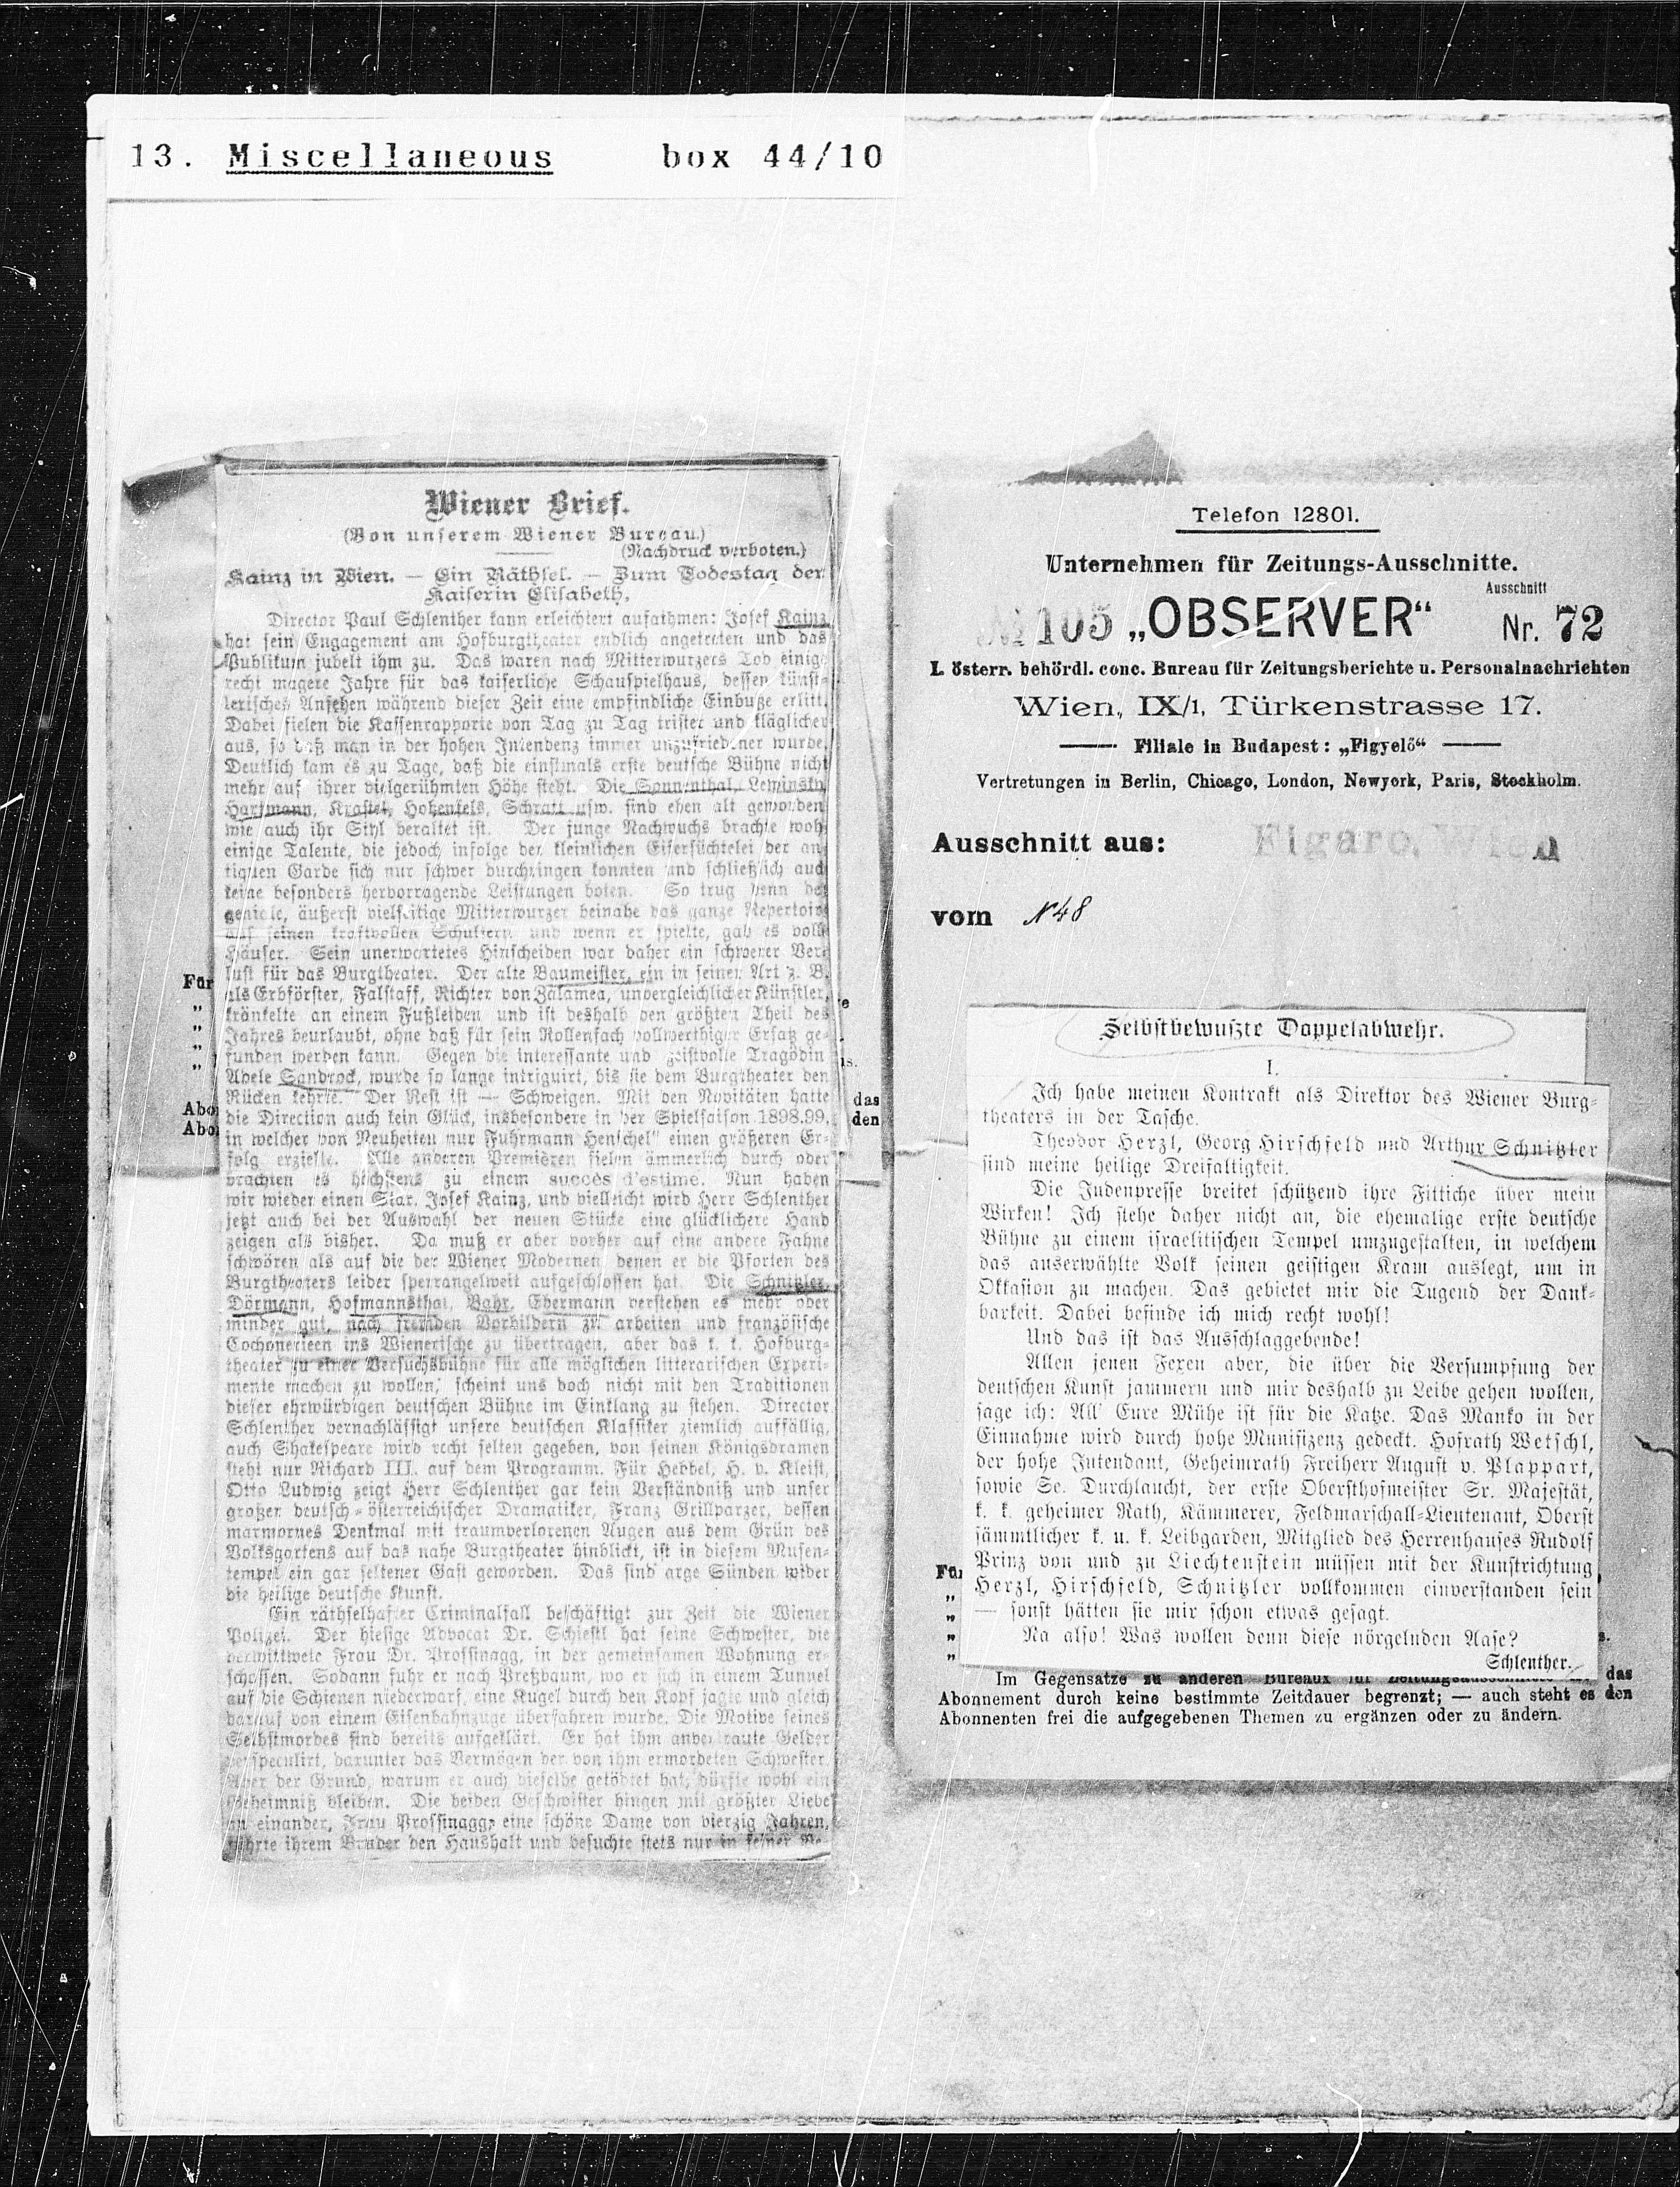 13. Miscellaneous box 44/10
Wiener Brief.
(Von unserem Wiener Bureau.)
(Nachdruck verboten.)
Kainz in Wien. — Ein Räthsel. — Zum Todestag der
Kaiserin Elisabeth.
Director Paul Schlenther kann erleichtert aufathmen: Josef Kainz
hat sein Engagement am Hofburgtheater endlich angetreten und das
Publikum jubelt ihm zu. Das waren nach Mitterwurzers Tod einige
recht magere Jahre für das kaiserliche Schauspielhaus, dessen künst-
lerisches Ansehen während dieser Zeit eine empfindliche Einbuße erlitt.
Dabei fielen die Kassenrapporte von Tag zu Tag trister und kläglicher
aus, so daß man in der hohen Intendenz immer unzufriedener wurde.
Deutlich kam es zu Tage, daß die einstmals erste deutsche Bühne nicht
mehr auf ihrer vielgerühmten Höhe steht. Die Sonnenthal, Lewinsky,
Hartmann, Krastel, Hohenfels, Schratt usw. sind eben alt geworden
wie auch ihr Styl veraltet ist. Der junge Nachwuchs brachte wohl
einige Talente, die jedoch infolge der kleinlichen Eifersüchtelei der an-
tiquen Garde sich nur schwer durchringen konnten und schließlich auch
keine besonders hervorragende Leistungen boten. So trug denn der
geniale, äußerst vielseitige Mitterwurzer beinahe das ganze Repertoire
auf seinen kraftvollen Schultern und wenn er spielte, gab es volle
Häuser. Sein unerwartetes Hinscheiden war daher ein schwerer Ver-
lust für das Burgtheater. Der alte Baumeister, ein in seiner Art z. B.
als Erbförster, Falstaff, Richter von Zalamea, unvergleichlicher Künstler,
kränkelte an einem Fußleiden und ist deshalb den größten Theil des
Jahres beurlaubt, ohne daß für sein Rollenfach vollwerthiger Ersatz ge-
funden werden kann. Gegen die interessante und geistvolle Tragödin
Adele Sandrock, wurde so lange intriguirt, bis sie dem Burgtheater den
Rücken kehrte. Der Rest ist — Schweigen. Mit den Novitäten hatte
die Direction auch kein Glück, insbesondere in der Spielsaison 1898.99,
in welcher von Neuheiten nur Fuhrmann Henschel" einen größeren Er-
folg erzielte. Alle anderen Premièren fielen ämmerlich durch oder
brachten es höchstens zu einem succès d'estime. Nun haben
wir wieder einen Star. Josef Kainz, und vielleicht wird Herr Schlenther
jetzt auch bei der Auswahl der neuen Stücke eine glücklichere Hand
zeigen als bisher. Da muß er aber vorher auf eine andere Fahne
schwören als auf die der Wiener Modernen denen er die Pforten des
Burgtheaters leider sperrangelweit aufgeschlossen hat. Die Schnitzler,
Dörmann, Hofmannsthal, Bahr, Ebermann verstehen es mehr oder
minder gut, nach fremden Vorbildern zu arbeiten und französische
Cochonerieen ins Wienerische zu übertragen, aber das k. k. Hofburg-
theater zu einer Versuchsbühne für alle möglichen litterarischen Experi-
mente machen zu wollen, scheint uns doch nicht mit den Traditionen
dieser ehrwürdigen deutschen Bühne im Einklang zu stehen. Director
Schlenther vernachlässigt unsere deutschen Klassiker ziemlich auffällig,
auch Shakespeare wird recht selten gegeben, von seinen Königsdramen
steht nur Richard III. auf dem Programm. Für Hebbel, H. v. Kleist,
Otto Ludwig zeigt Herr Schlenther gar kein Verständniß und unser
großer deutsch-österreichischer Dramatiker, Franz Grillparzer, dessen
marmornes Denkmal mit traumverlorenen Augen aus dem Grün des
Volksgartens auf das nahe Burgtheater hinblickt, ist in diesem Musen-
tempel ein gar seltener Gast geworden. Das sind arge Sünden wider
die heilige deutsche Kunst.
Ein räthselhafter Criminalfall beschäftigt zur Zeit die Wiener
Polizei. Der hiesige Advocat Dr. Schiestl hat seine Schwester, die
verwittwete Frau Dr. Prossinagg, in der gemeinsamen Wohnung er-
schossen. Sodann fuhr er nach Preßbaum, wo er sich in einem Tunnel
auf die Schienen niederwarf, eine Kugel durch den Kopf jagte und gleich
darauf von einem Eisenbahnzuge überfahren wurde. Die Motive seines
Selbstmordes sind bereits aufgeklärt. Er hat ihm anvertraute Gelder
verspeculirt, darunter das Vermögen der von ihm ermordeten Schwester.
Aber der Grund, warum er auch dieselbe getödtet hat, dürfte wohl ein
Geheimniß bleiben. Die beiden Geschwister hingen mit größter Liebe
an einander, Frau Prossinagg, eine schöne Dame von vierzig Jahren,
führte ihrem Bruder den Haushalt und besuchte stets nur in seiner Be-
Für
"
"
"
"
Abo
Abo
e
is.
das
den
Telefon 12801.
Unternehmen für Zeitungs-Ausschnitte.
Ausschnitt
№ 105 „OBSERVER“ Nr. 72
I. österr. behördl. conc. Bureau für Zeitungsberichte u. Personalnachrichten
Wien, IX/1, Türkenstrasse 17.
— Filiale in Budapest: „Figyelő“ —
Vertretungen in Berlin, Chicago, London, Newyork, Paris, Stockholm.
Ausschnitt aus: Figaro, Wien
vom N 48
Selbstbewuszte Doppelabwehr.
I.
Ich habe meinen Kontrakt als Direktor des Wiener Burg-
theaters in der Tasche.
Theodor Herzl, Georg Hirschfeld und Arthur Schnitzler
sind meine heilige Dreifaltigkeit.
Die Judenpresse breitet schützend ihre Fittiche über mein
Wirken! Ich stehe daher nicht an, die ehemalige erste deutsche
Bühne zu einem israelitischen Tempel umzugestalten, in welchem
das auserwählte Volk seinen geistigen Kram auslegt, um in
Okkasion zu machen. Das gebietet mir die Tugend der Dank-
barkeit. Dabei befinde ich mich recht wohl!
Und das ist das Ausschlaggebende!
Allen jenen Fexen aber, die über die Versumpfung der
deutschen Kunst jammern und mir deshalb zu Leibe gehen wollen,
sage ich: All' Eure Mühe ist für die Katze. Das Manko in der
Einnahme wird durch hohe Munifizenz gedeckt. Hofrath Wetschl,
der hohe Intendant, Geheimrath Freiherr August v. Plappart,
sowie Se. Durchlaucht, der erste Obersthofmeister Sr. Majestät,
k. k. geheimer Rath, Kämmerer, Feldmarschall-Lieutenant, Oberst
sämmtlicher k. u. k. Leibgarden, Mitglied des Herrenhauses Rudolf
Prinz von und zu Liechtenstein müssen mit der Kunstrichtung
Herzl, Hirschfeld, Schnitzler vollkommen einverstanden sein
— sonst hätten sie mir schon etwas gesagt.
Na also! Was wollen denn diese nörgelnden Aase?
Schlenther.
Für
"
"
"
"
s.
Im Gegensatze zu anderen Bureaux für Zeitungsausschnitte das
Abonnement durch keine bestimmte Zeitdauer begrenzt; — auch steht es den
Abonnenten frei die aufgegebenen Themen zu ergänzen oder zu ändern.